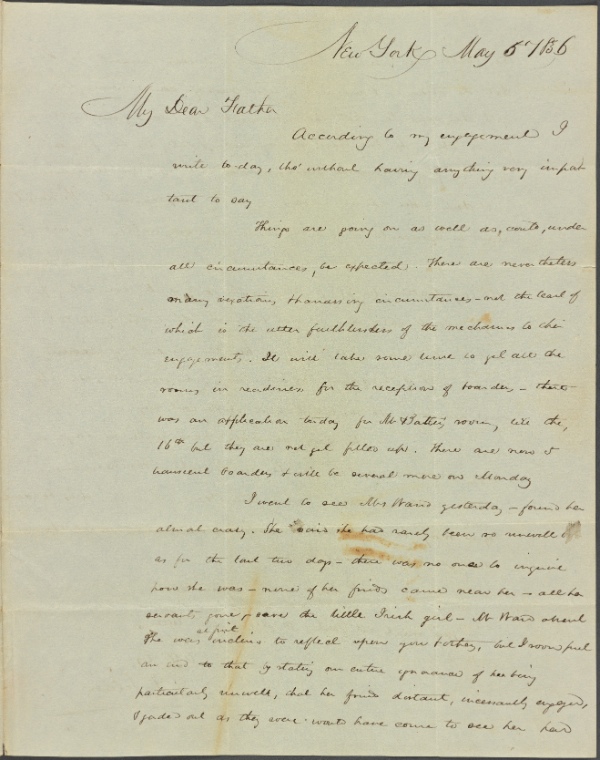 New York May 6th 1836
My Dear Father
According to my engagement I
write to-day, tho' without having anything very impor
tant to say
Things are going on as well as, could, under
all circumstances, be expected. There are nevertheless
many vexatious & harassing circumstances – not the least of
which is the utter faithlessness of the mechanics to their
engagements. It will take some time to get all the
rooms in readiness for the reception of boarders – there
was an application today for Mr rooms, till the,
16th but they are not yet fitted up. There are now 5
transient boarders & will be several more on Monday
I went to see Mrs Ward yesterday – found her
almost crazy. She said she had rarely been so unwell
as for the last two days – there was no one to inquire
how she was – none of her friends came near her – all her
servants gone, save the little Irish girl – Mr Ward absent
She was at first inclined to reflect upon you & others, but I soon put
an end to that by stating our entire ignorance of her being
particularly unwell, that her friends distant, incessantly engaged,
& jaded out as they were would have come to see her had